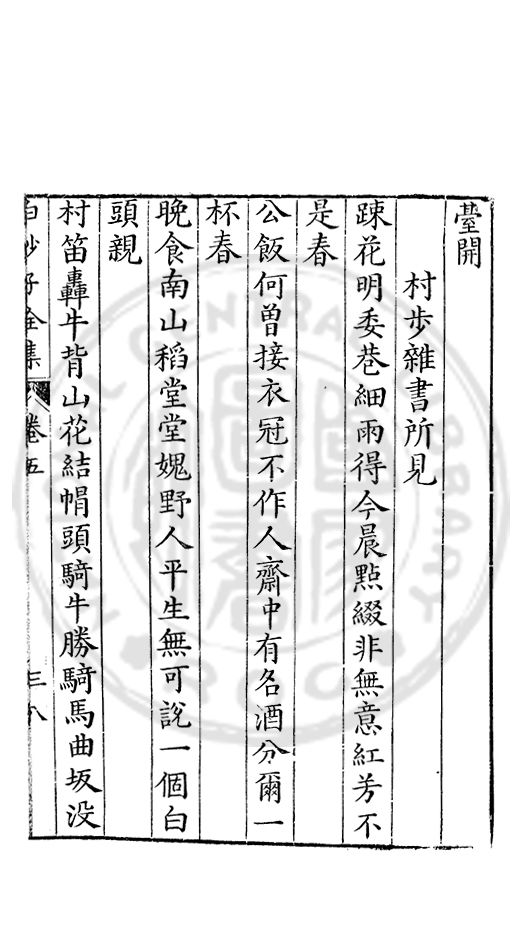 臺開
村步雜書所見
踈花明委巷細雨得今晨點綴非無意紅芳不
是春
公飯何曾接衣冠不作人齋中有名酒分爾一
杯春
晚食南山稻堂堂媿野人平生無可說一個白
頭親
村笛轟牛背山花結帽頭騎牛勝騎馬曲坂没
白沙子全集 卷五 三八